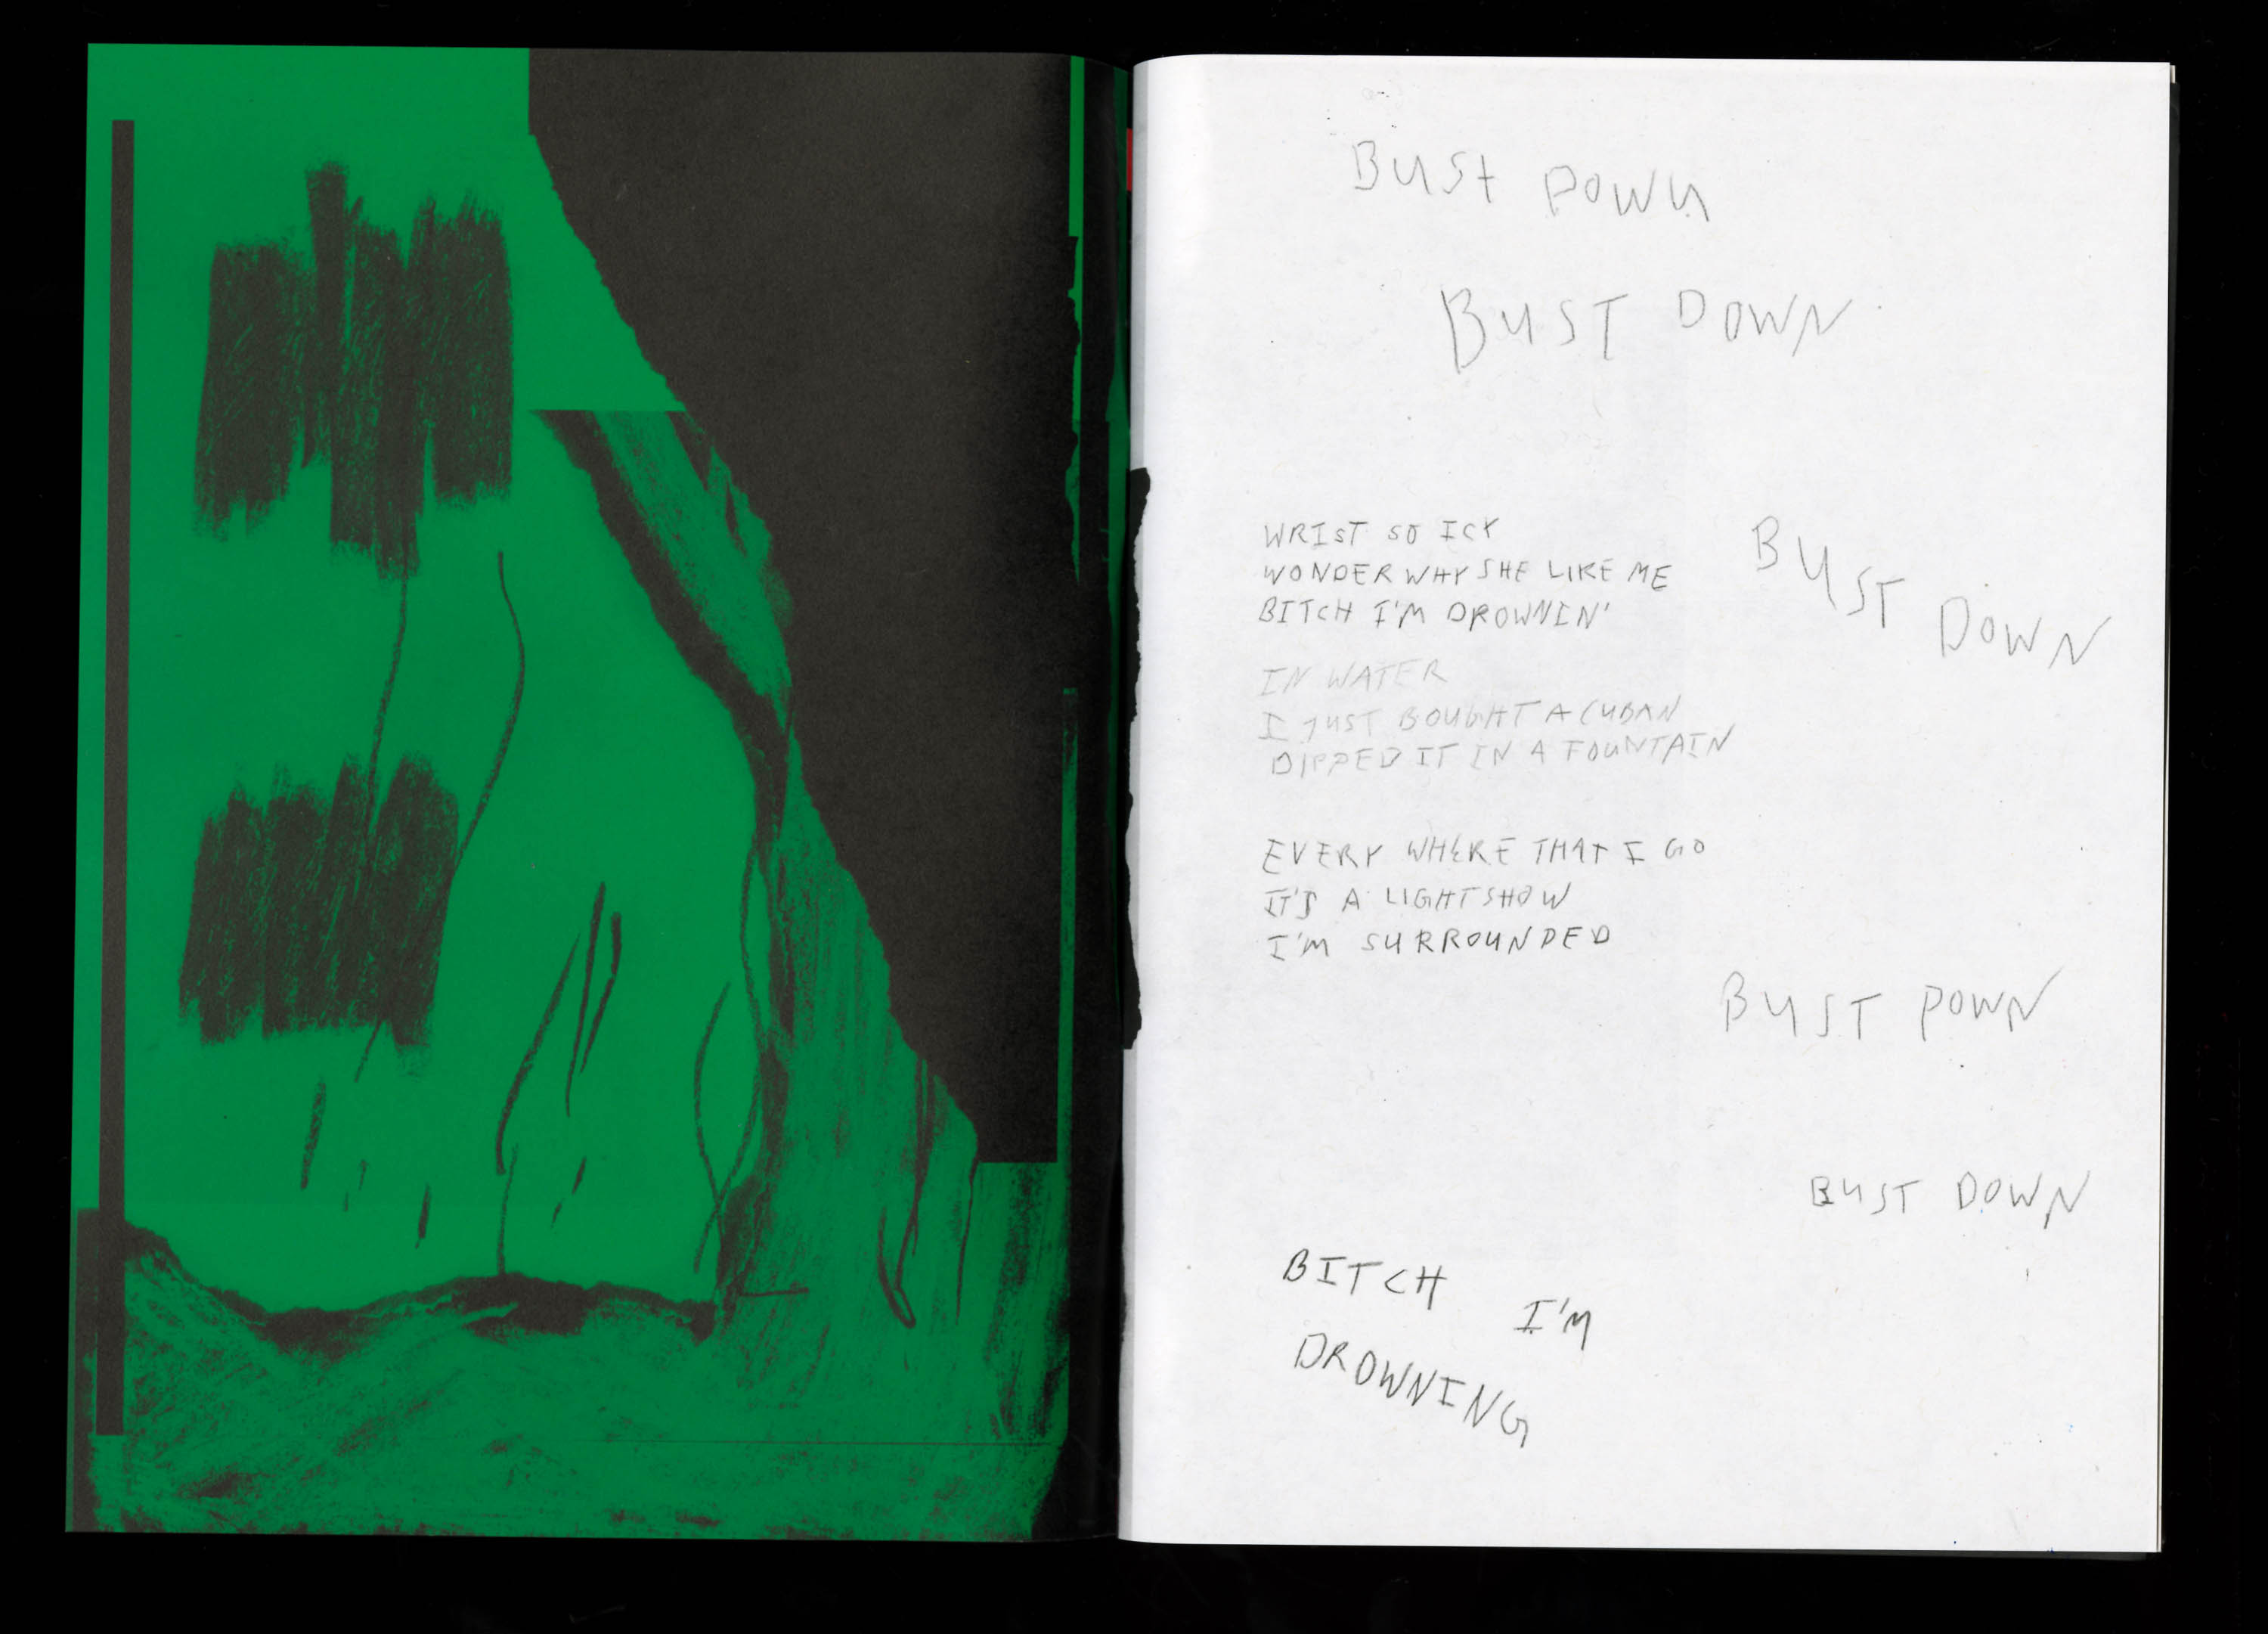 BUST DOWN
BUST DOWN
WRIST SO ICY
WONDER WHY SHE LIKE ME
BITCH I'M DROWNIN'
BUST DOWN
IN WATER
I JUST BOUGHT A CUBAN
DIPPED IT IN A FOUNTAIN
EVERY WHERE THAT I GO
IT'S A LIGHTSHOW
I'M SURROUNDED
BUST DOWN
BUST DOWN
BITCH I'M
DROWNING